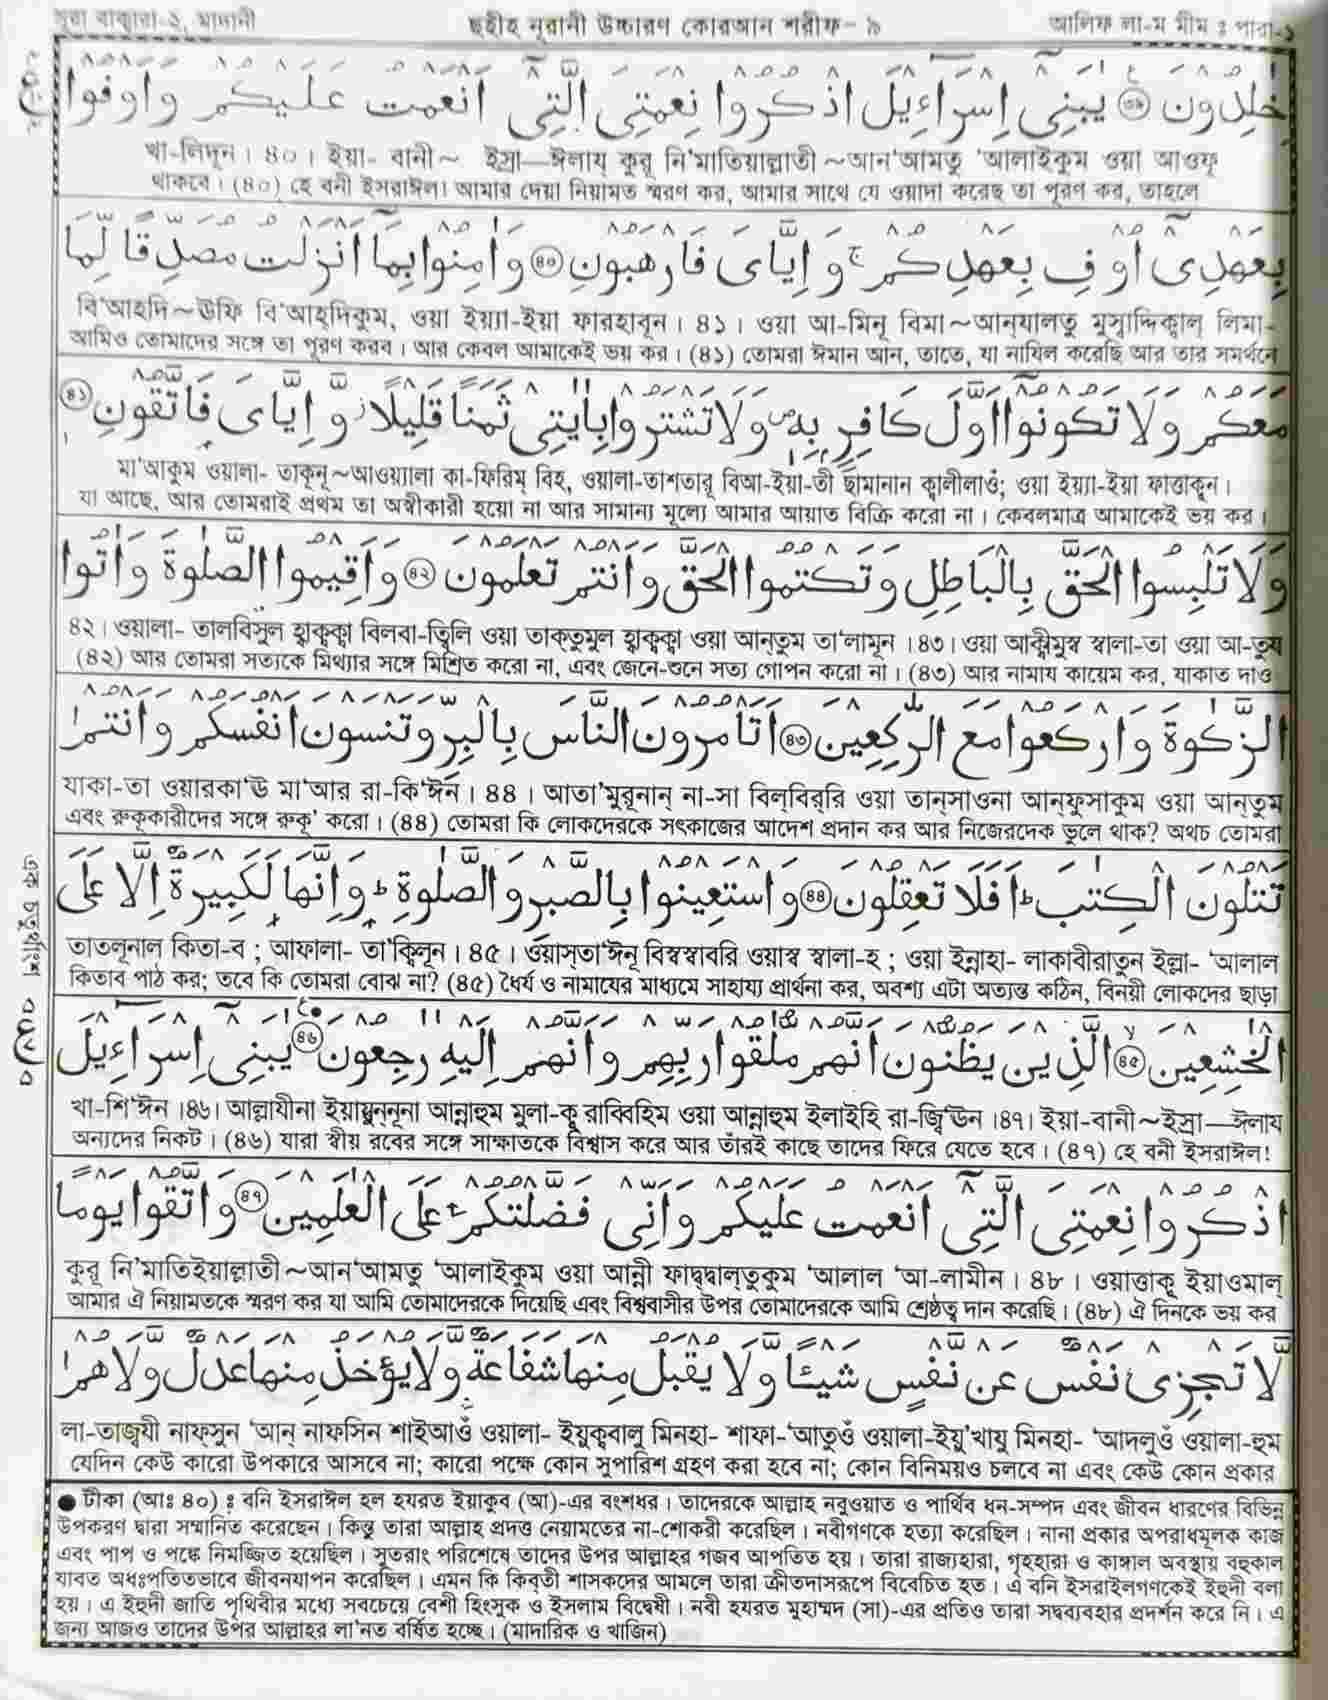 সুরা বাক্বারা-২, মাদানী ছহীহ নূরানী উচ্চারণ কোরআন শরীফ- ৯ আলিফ লা-ম মীম : পারা-১
خٰلِدُوْنَ ﴿٣٩﴾ يٰبَنِيْٓ اِسْرَآءِيْلَ اذْكُرُوْا نِعْمَتِيَ الَّتِيْٓ اَنْعَمْتُ عَلَيْكُمْ وَاَوْفُوْا
খা-লিদূন। ৪০। ইয়া- বানী~ ইস্রা—ঈলায্ কুরূ নি'মাতিয়াল্লাতী ~আন'আমতু 'আলাইকুম ওয়া আওফূ
থাকবে। (৪০) হে বনী ইসরাঈল! আমার দেয়া নিয়ামত স্মরণ কর, আমার সাথে যে ওয়াদা করেছ তা পূরণ কর, তাহলে
بِعَهْدِيْٓ اُوْفِ بِعَهْدِكُمْ ۚ وَاِيَّايَ فَارْهَبُوْنِ ﴿৪০﴾ وَاٰمِنُوْا بِمَآ اَنْزَلْتُ مُصَدِّقًا لِّمَا
বি'আহদি~ঊফি বি'আহ্দিকুম, ওয়া ইয়্যা-ইয়া ফারহাবূন। ৪১। ওয়া আ-মিনূ বিমা~আন্‌যালতু মুস্বাদ্দিক্বাল্ লিমা-
আমিও তোমাদের সঙ্গে তা পূরণ করব। আর কেবল আমাকেই ভয় কর। (৪১) তোমরা ঈমান আন, তাতে, যা নাযিল করেছি আর তার সমর্থনে
مَعَكُمْ وَلَا تَكُوْنُوْٓا اَوَّلَ كَافِرٍ ۢ بِهٖ ۪ وَلَا تَشْتَرُوْا بِاٰيٰتِيْ ثَمَنًا قَلِيْلًا ز وَّاِيَّايَ فَاتَّقُوْنِ ﴿৪১﴾
মা'আকুম ওয়ালা- তাকূনূ~আওয়্যালা কা-ফিরিম্ বিহ, ওয়ালা-তাশতারূ বিআ-ইয়া-তী ছামানান ক্বালীলাওঁ; ওয়া ইয়্যা-ইয়া ফাত্তাক্বূন।
যা আছে, আর তোমরাই প্রথম তা অস্বীকারী হয়ো না আর সামান্য মূল্যে আমার আয়াত বিক্রি করো না। কেবলমাত্র আমাকেই ভয় কর।
وَلَا تَلْبِسُوا الْحَقَّ بِالْبَاطِلِ وَتَكْتُمُوا الْحَقَّ وَاَنْتُمْ تَعْلَمُوْنَ ﴿৪২﴾ وَاَقِيْمُوا الصَّلٰوةَ وَاٰتُوا
৪২। ওয়ালা- তালবিসুল হ্বাক্বক্বা বিলবা-ত্বিলি ওয়া তাক্‌তুমুল হ্বাক্বক্বা ওয়া আন্‌তুম তা'লামূন। ৪৩। ওয়া আক্বীমুস্ব স্বালা-তা ওয়া আ-তুয
(৪২) আর তোমরা সত্যকে মিথ্যার সঙ্গে মিশ্রিত করো না, এবং জেনে-শুনে সত্য গোপন করো না। (৪৩) আর নামায কায়েম কর, যাকাত দাও
الزَّكٰوةَ وَارْكَعُوْا مَعَ الرّٰكِعِيْنَ ﴿৪৩﴾ اَتَاْمُرُوْنَ النَّاسَ بِالْبِرِّ وَتَنْسَوْنَ اَنْفُسَكُمْ وَاَنْتُمْ
যাকা-তা ওয়ারকা'ঊ মা'আর রা-কি'ঈন। ৪৪। আতা'মুরূনান্ না-সা বিল্‌বির্‌রি ওয়া তান্‌সাওনা আন্‌ফুসাকুম ওয়া আন্‌তুম
এবং রুকূকারীদের সঙ্গে রুকূ' করো। (৪৪) তোমরা কি লোকদেরকে সৎকাজের আদেশ প্রদান কর আর নিজেরদেক ভুলে থাক? অথচ তোমরা
تَتْلُوْنَ الْكِتٰبَ ؕ اَفَلَا تَعْقِلُوْنَ ﴿৪৪﴾ وَاسْتَعِيْنُوْا بِالصَّبْرِ وَالصَّلٰوةِ ؕ وَاِنَّهَا لَكَبِيْرَةٌ اِلَّا عَلَى
তাতলূনাল কিতা-ব ; আফালা- তা'ক্বিলূন। ৪৫। ওয়াস্‌তা'ঈনূ বিস্বস্বাবরি ওয়াস্ব স্বালা-হ ; ওয়া ইন্নাহা- লাকাবীরাতুন ইল্লা- 'আলাল
কিতাব পাঠ কর; তবে কি তোমরা বোঝ না? (৪৫) ধৈর্য ও নামাযের মাধ্যমে সাহায্য প্রার্থনা কর, অবশ্য এটা অত্যন্ত কঠিন, বিনয়ী লোকদের ছাড়া
এক চতুর্থাংশ
الْخٰشِعِيْنَ ﴿৪৫﴾ الَّذِيْنَ يَظُنُّوْنَ اَنَّهُمْ مُّلٰقُوْا رَبِّهِمْ وَاَنَّهُمْ اِلَيْهِ رٰجِعُوْنَ ﴿৪৬﴾ يٰبَنِيْٓ اِسْرَآءِيْلَ
খা-শি'ঈন।৪৬। আল্লাযীনা ইয়াযুন্‌নূনা আন্নাহুম মুলা-ক্বূ রাব্বিহিম ওয়া আন্নাহুম ইলাইহি রা-জ্বি'ঊন।৪৭। ইয়া-বানী~ইস্রা—ঈলায
অন্যদের নিকট। (৪৬) যারা স্বীয় রবের সঙ্গে সাক্ষাতকে বিশ্বাস করে আর তাঁরই কাছে তাদের ফিরে যেতে হবে। (৪৭) হে বনী ইসরাঈল!
اذْكُرُوْا نِعْمَتِيَ الَّتِيْٓ اَنْعَمْتُ عَلَيْكُمْ وَاَنِّيْ فَضَّلْتُكُمْ عَلَى الْعٰلَمِيْنَ ﴿৪৭﴾ وَاتَّقُوْا يَوْمًا
কুরূ নি'মাতিইয়াল্লাতী~আন'আমতু 'আলাইকুম ওয়া আন্নী ফাদ্বদ্বাল্‌তুকুম 'আলাল 'আ-লামীন। ৪৮। ওয়াত্তাক্বূ ইয়াওমাল্
আমার ঐ নিয়ামতকে স্মরণ কর যা আমি তোমাদেরকে দিয়েছি এবং বিশ্ববাসীর উপর তোমাদেরকে আমি শ্রেষ্ঠত্ব দান করেছি। (৪৮) ঐ দিনকে ভয় কর
لَّا تَجْزِيْ نَفْسٌ عَنْ نَّفْسٍ شَيْـًٔا وَّلَا يُقْبَلُ مِنْهَا شَفَاعَةٌ وَّلَا يُؤْخَذُ مِنْهَا عَدْلٌ وَّلَا هُمْ
লা-তাজ্বযী নাফ্‌সুন 'আন্ নাফসিন শাইআওঁ ওয়ালা- ইয়ুক্ববালু মিনহা- শাফা-'আতুওঁ ওয়ালা-ইয়ু'খাযু মিনহা- 'আদলুওঁ ওয়ালা-হুম
যেদিন কেউ কারো উপকারে আসবে না; কারো পক্ষে কোন সুপারিশ গ্রহণ করা হবে না; কোন বিনিময়ও চলবে না এবং কেউ কোন প্রকার
● টীকা (আঃ ৪০) : বনি ইসরাঈল হল হযরত ইয়াকুব (আ)-এর বংশধর। তাদেরকে আল্লাহ নবুওয়াত ও পার্থিব ধন-সম্পদ এবং জীবন ধারণের বিভিন্ন
উপকরণ দ্বারা সম্মানিত করেছেন। কিন্তু তারা আল্লাহ প্রদত্ত নেয়ামতের না-শোকরী করেছিল। নবীগণকে হত্যা করেছিল। নানা প্রকার অপরাধমূলক কাজ
এবং পাপ ও পঙ্কে নিমজ্জিত হয়েছিল। সুতরাং পরিশেষে তাদের উপর আল্লাহর গজব আপতিত হয়। তারা রাজ্যহারা, গৃহহারা ও কাঙ্গাল অবস্থায় বহুকাল
যাবত অধঃপতিতভাবে জীবনযাপন করেছিল। এমন কি কিবৃতী শাসকদের আমলে তারা ক্রীতদাসরূপে বিবেচিত হত। এ বনি ইসরাইলগণকেই ইহুদী বলা
হয়। এ ইহুদী জাতি পৃথিবীর মধ্যে সবচেয়ে বেশী হিংসুক ও ইসলাম বিদ্বেষী। নবী হযরত মুহাম্মদ (সা)-এর প্রতিও তারা সদ্ব্যবহার প্রদর্শন করে নি। এ
জন্য আজও তাদের উপর আল্লাহর লা'নত বর্ষিত হচ্ছে। (মাদারিক ও খাজিন)